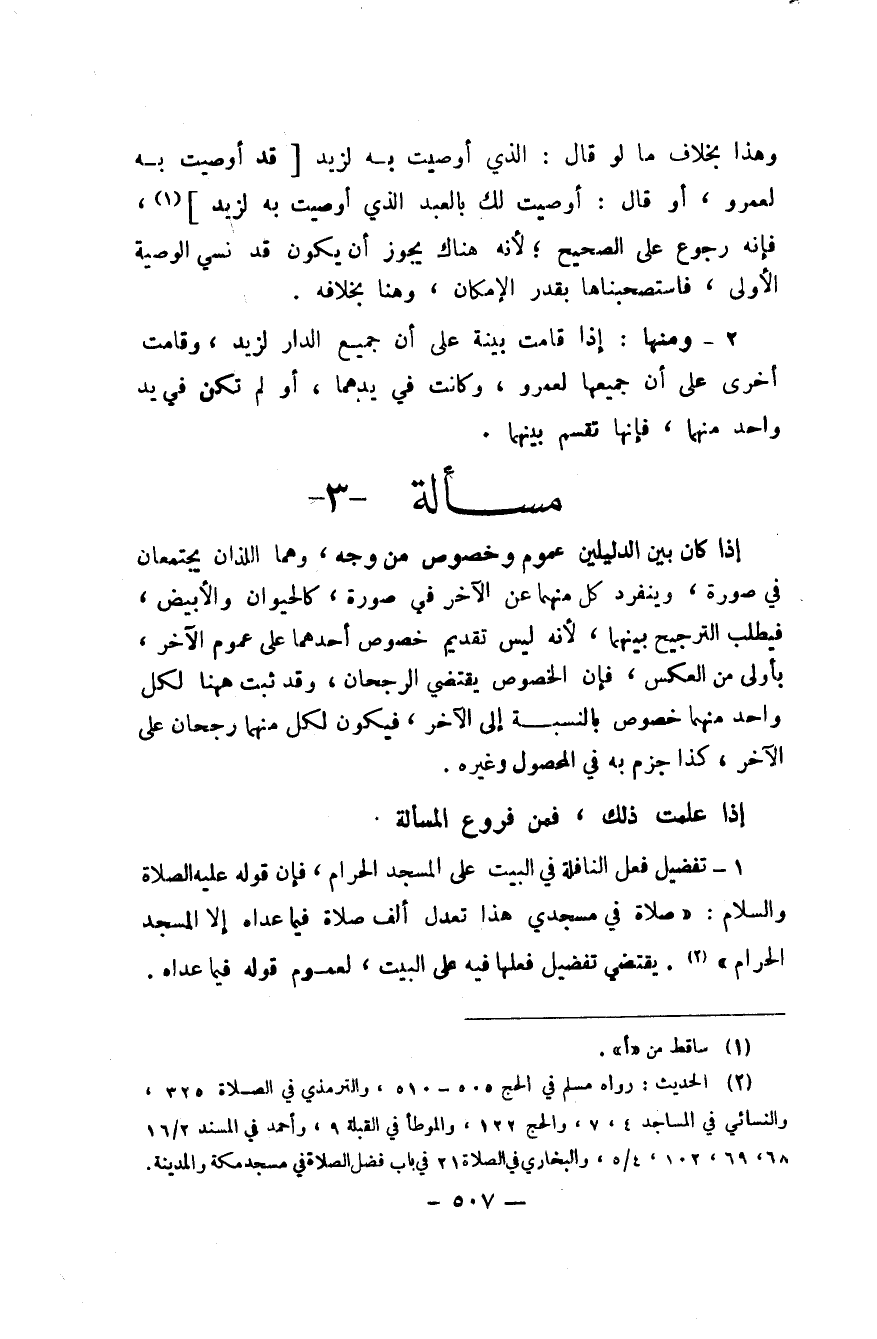 وهذا بخلاف ما لو قال : الذي أوصيت بـه لزيد [ قد أوصيت بـه
لعمرو ، أو قال : أوصيت لك بالعبد الذي أوصيت به لزيد ](١) ،
فإنه رجوع على الصحيح ؛ لأنه هناك يجوز أن يكون قد نسي الوصية
الأولى ، فاستصحبناها بقدر الإمكان ، وهنا بخلافه .
٢ - ومنها : إذا قامت بينة على أن جميع الدار لزيد ، وقامت
أخرى على أن جميعها لعمرو ، وكانت في يدهما ، أو لم تكن في يد
واحد منهما ، فإنها تقسم بينهما .
مســألة -٣-
إذا كان بين الدليلين عموم وخصوص من وجه ، وهما اللذان يجتمعان
في صورة ، وينفرد كل منهما عن الآخر في صورة ، كالحيوان والأبيض ،
فيطلب الترجيح بينهما ، لأنه ليس تقديم خصوص أحدهما على عموم الآخر ،
بأولى من العكس ، فإن الخصوص يقتضي الرجحان ، وقد ثبت ههنا لكل
واحد منهما خصوص بالنسبـة إلى الآخر ، فيكون لكل منهما رجحان على
الآخر ، كذا جزم به في المحصول وغيره .
إذا علمت ذلك ، فمن فروع المسألة .
١ - تفضيل فعل النافلة في البيت على المسجد الحرام ، فإن قوله عليه الصلاة
والسلام : « صلاة في مسجدي هذا تعدل ألف صلاة فيما عداه إلا المسجد
الحرام » (٢) . يقتضي تفضيل فعلها فيه على البيت ، لعمـوم قوله فيما عداه .
(١) ساقط من «أ» .
(٢) الحديث : رواه مسلم في الحج ٥٠٥ – ٥١٠ ، والترمذي في الصـلاة ٣٢٥ ،
والنسائي في المساجد ٤ ، ٧ ، والحج ١٢٢ ، والموطأ في القبلة ٩ ، وأحمد في المسند ١٦/٢
٦٨ ، ٦٩ ، ١٠٢ ، ٥/٤ ، والبخاري في الصلاة ٢١ في باب فضل الصلاة في مسجد مكة والمدينة .
– ٥٠٧ –